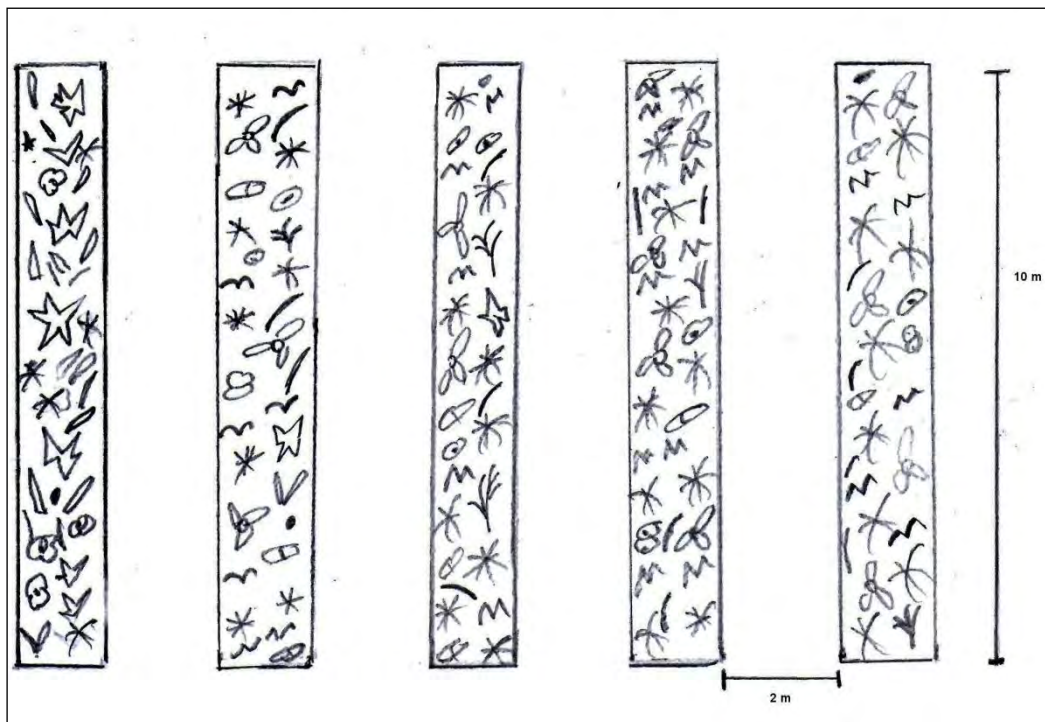 10 m
2 m